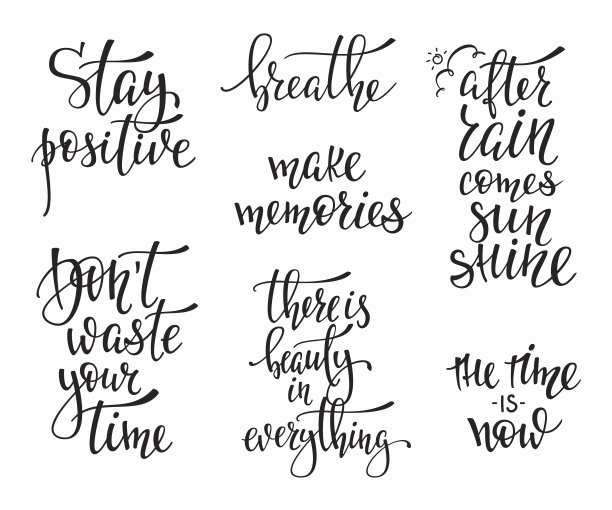 Stay
positive
breathe
make
memories
after
rain
comes
sun
sHine
Don't
waste
your
time
there is
beauty
in
everything
tHe time
-IS-
now